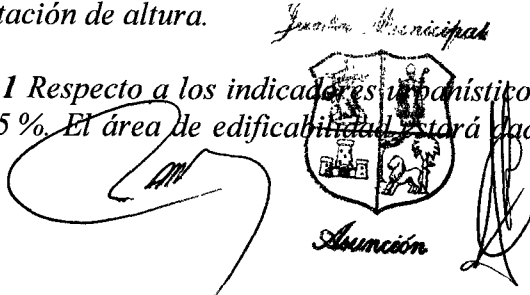 tación de altura.
Junta Municipal
1 Respecto a los indicadores urbanístico
5 %. El área de edificabilidad estará dad
Asunción